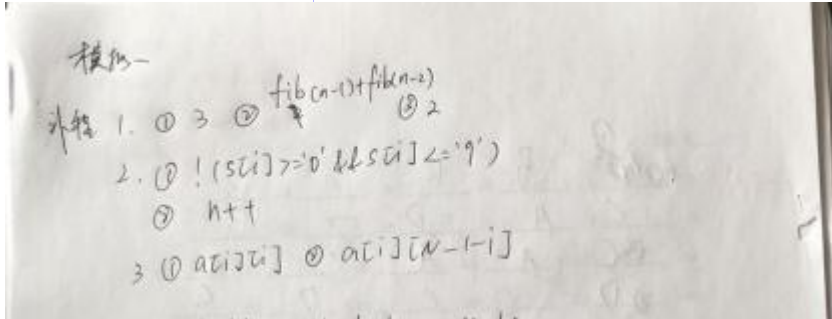 模拟一
补程 1. ① 3 ② fib(n-1)+fib(n-2)
③ 2
2. ① !(s[i]>='0' && s[i]<='9')
② n++
3 ① a[i][i] ② a[i][N-1-i]